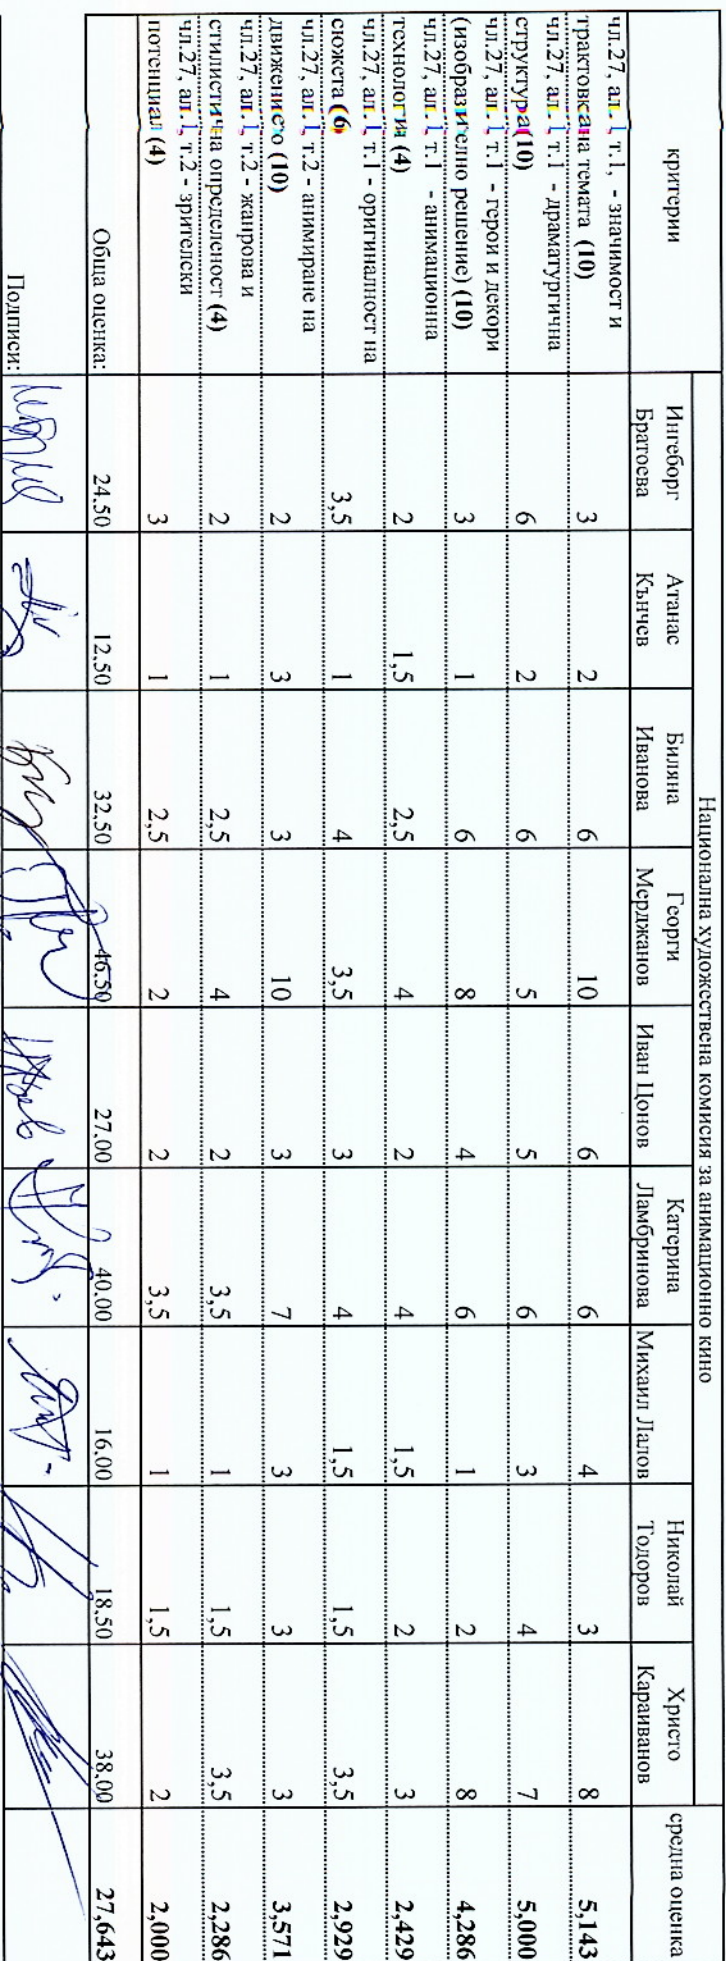 Национална художествена комисия за анимационно кино
критерии Ингеборг Братоева Атанас Кънчев Биляна Иванова Георги Мерджанов Иван Цонов Катерина Ламбринова Михаил Лалов Николай Тодоров Христо Караиванов средна оценка
чл.27, ал. 1 т.1, - значимост и
трактовка на темата (10) 3 2 6 10 6 6 4 3 8 5,143
чл.27, ал. 1 т.1 - драматургична
структура (10) 6 2 6 5 5 6 3 4 7 5,000
чл.27, ал. 1 т.1 - герои и декори
(изобразително решение) (10) 3 1 6 8 4 6 1 2 8 4,286
чл.27, ал. 1 т.1 - анимационна
технология (4) 2 1,5 2,5 4 2 4 1,5 2 3 2,429
чл.27, ал. 1 т.1 - оригиналност на
сюжета (6) 3,5 1 4 3,5 3 4 1,5 1,5 3,5 2,929
чл.27, ал. 1 т.2 - анимиране на
движението (10) 2 3 3 10 3 7 3 3 3 3,571
чл.27, ал. 1 т.2 - жанрова и
стилистична определеност (4) 2 1 2,5 4 2 3,5 1 1,5 3,5 2,286
чл.27, ал. 1 т.2 - зрителски
потенциал (4) 3 1 2,5 2 2 3,5 1 1,5 2 2,000
Обща оценка: 24.50 12.50 32.50 46.50 27.00 40.00 16.00 18.50 38.00 27,643
Подписи: